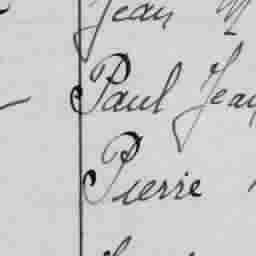 Jean M
Paul Jean
Pierre